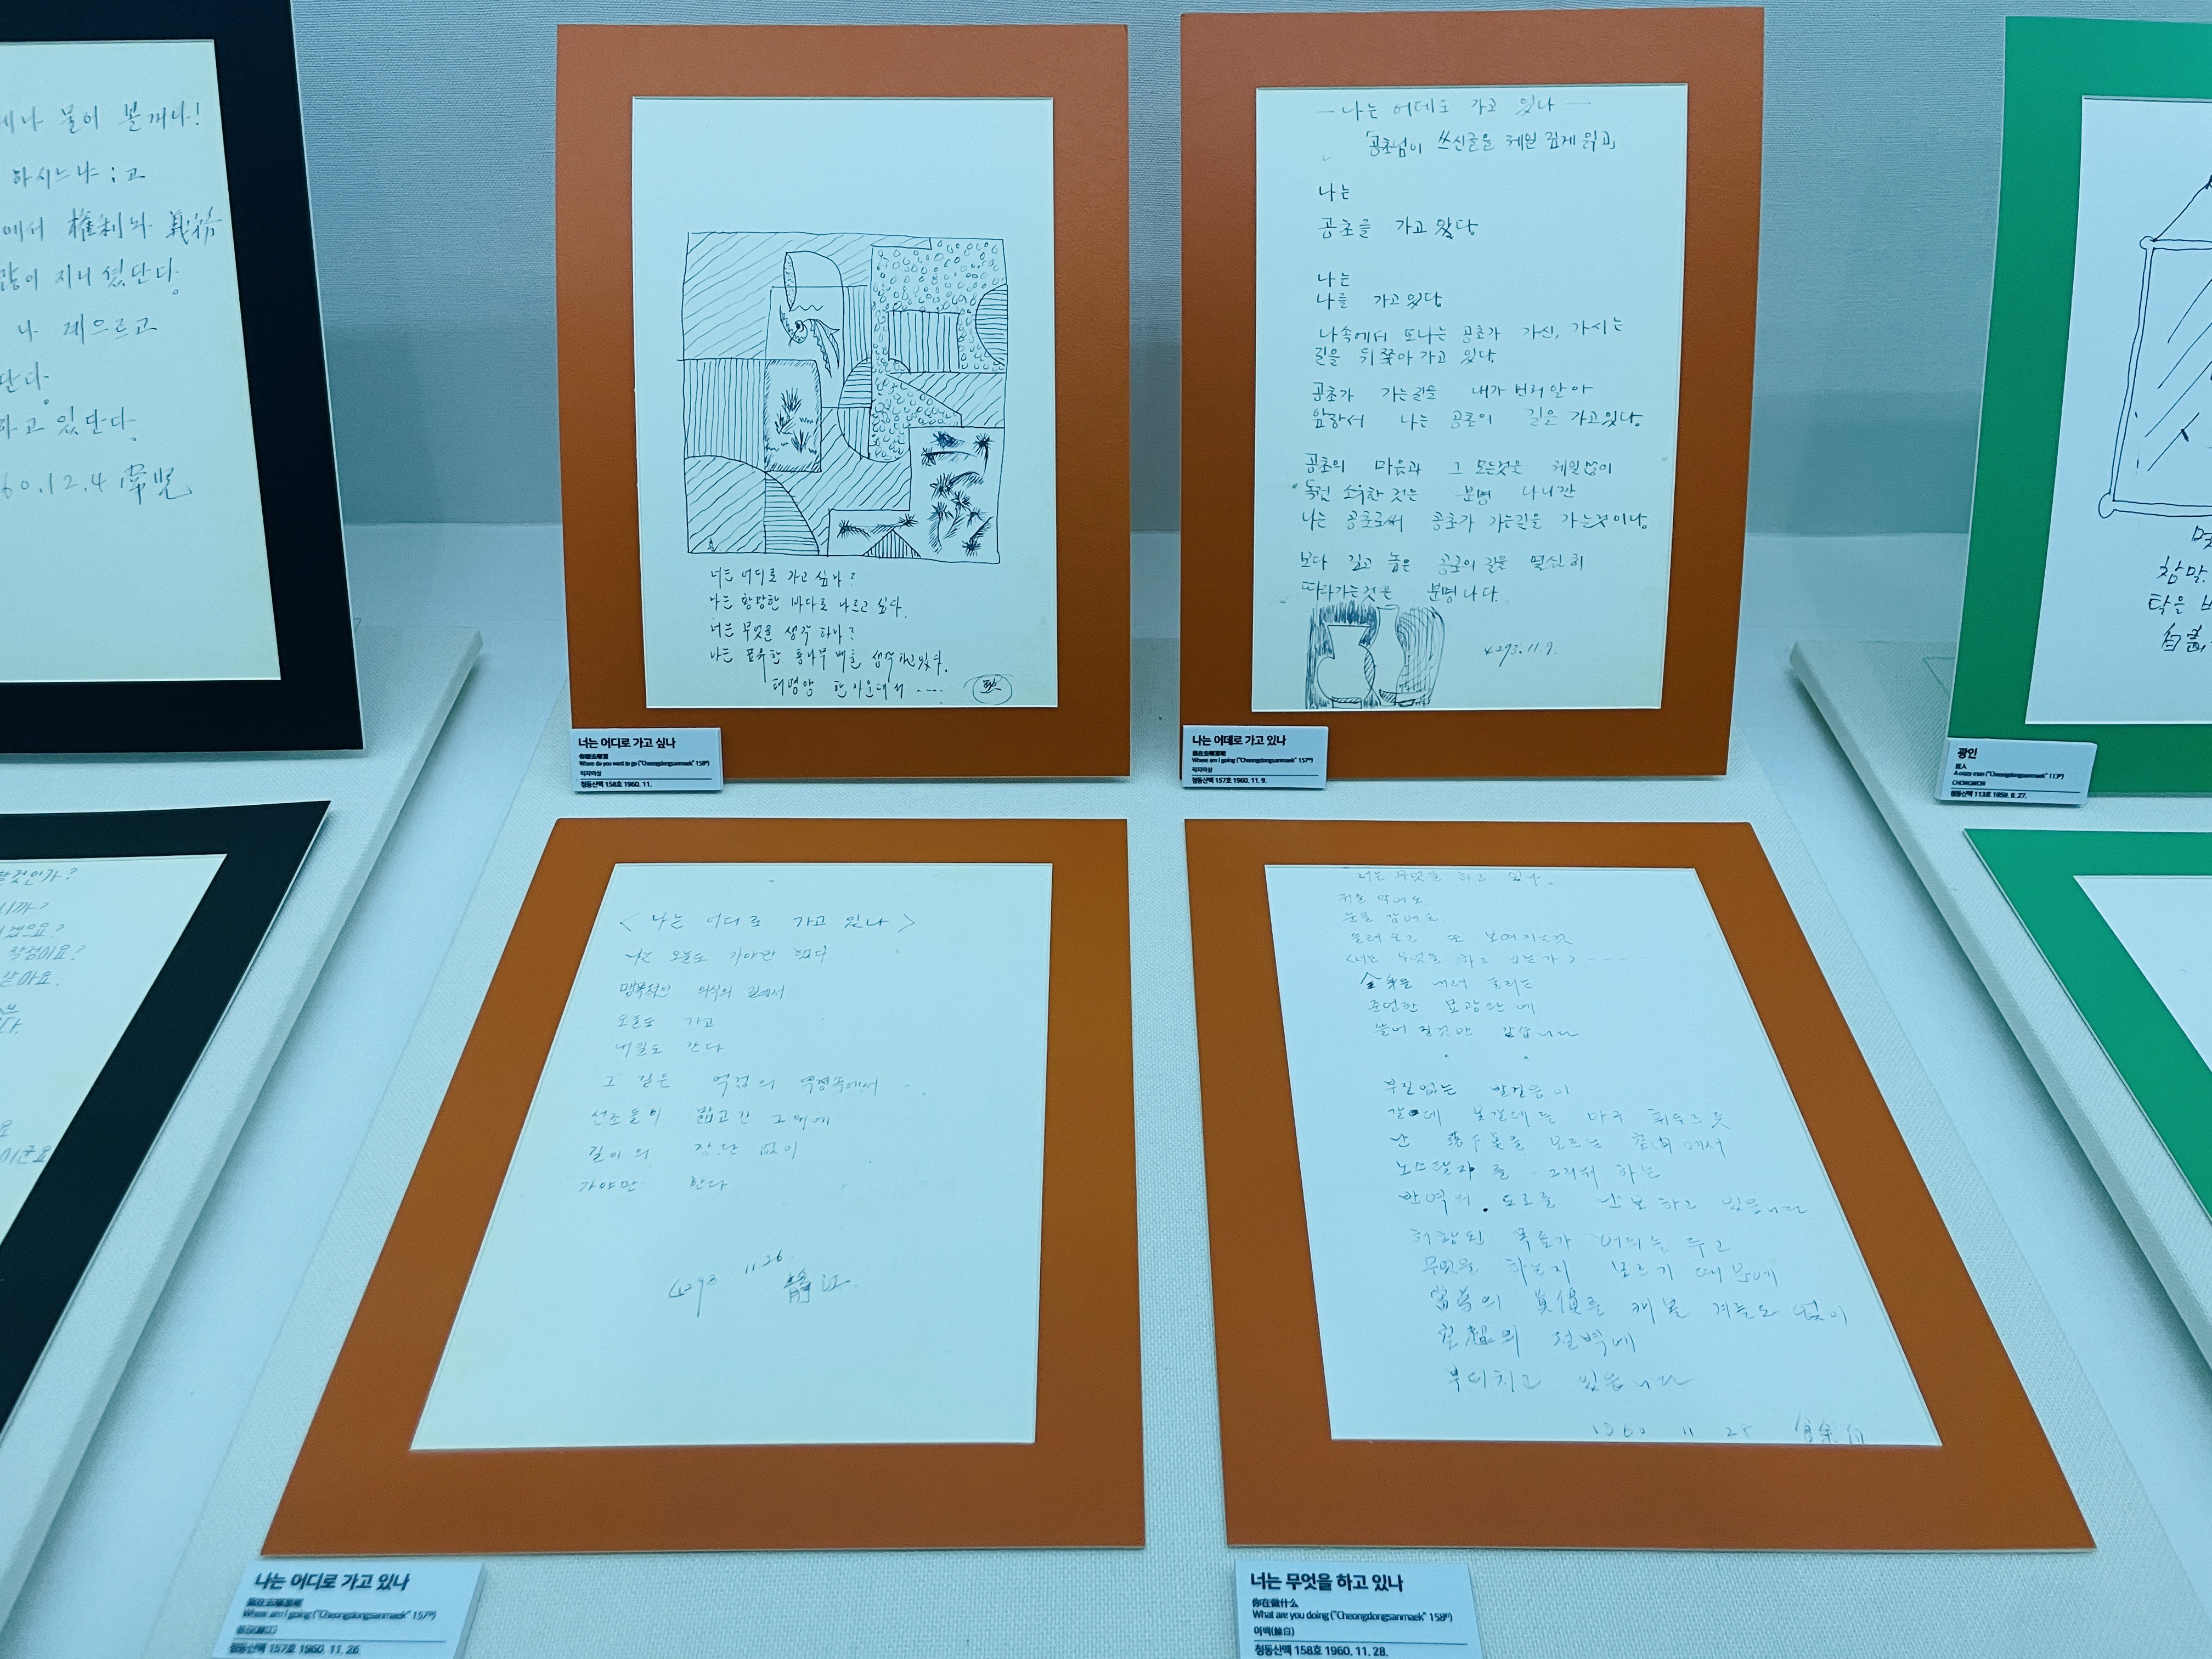 세나 물어 볼꺼나!
하시느냐;고
에서 權利와 義務
같이 지니셨단다.
나 계으르고
단다.
하고 있단다.
60.12.4
너는 어디로 가고 싶나?
나는 황망한 바다로 나르고 싶다.
너는 무엇을 생각 하나?
나는 표류한 통나무 배를 생각하고있다.
태평양 한가운데서 ....
너는 어디로 가고 싶나
Where do you want to go ("Cheongdongsanmaek" 158th)
작자미상
청동산맥 158호 1960. 11.
— 나는 어데로 가고 있나 —
「공초님이 쓰신글을 헤일 깊게 읽고」
나는
공초를 가고 있다
나는
나를 가고있다
나속에서 또나는 공초가 가신, 가시는
길을 뒤쫓아 가고 있다.
공초가 가는길을 내가 번러 알아
앞장서 나는 공초의 길을 가고있다.
공초의 마음과 그 모든것은 헤일없이
독것 소유한 것은 분명 나니깐
나는 공초로써 공초가 가는길을 가는것이다.
보다 깊고 높은 공초의 길을 열심히
따라가는것은 분명 나다.
4293.11.9.
나는 어데로 가고 있나
Where am I going ("Cheongdongsanmaek" 157th)
작자미상
청동산맥 157호 1960. 11. 9.
참말
탁을
광인
狂人
A crazy man ("Cheongdongsanmaek" 113th)
CHONGWON
청동산맥 113호 1959. 8. 27.
할것인가?
니까?
겠으요?
작정이요?
같아요.
요
이군요
<나는 어디로 가고 있나>
나는 오늘도 가야만 했다
맹목적인 의식의 길에서
오늘도 가고
내일도 간다
그 길은 억겁의 역경속에서
선조들이 밟고간 그위에
길이의 장.단 없이
가야만 한다
4293 11 26 靜江.
나는 어디로 가고 있나
Where am I going ("Cheongdongsanmaek" 157th)
청동산맥 157호 1960. 11. 26.
너는 무엇을 하고 있나.
귀를 막어도
눈을 감어도
들려오고 또 보여지는것
<너는 무엇을 하고 있는가>----
全身을 내려 눌리는
준엄한
늘어 질것만 같습니다
부질없는 발걸음이
갈대 꽃갈대를 마구 휘두르듯
난 落下美를 모르는 에서
노스탈쟈를 그리워 하는
반역의. 도로를 난보하고 있읍니다
허황된 목숨가 머리를 두고
무엇을 하는지 모르기 때문에
眞價를 캐볼 겨늘도 없이
空超의 절벽에
부디치고 있읍니다
1960 11 28 餘白
너는 무엇을 하고 있나
你在做什么
What are you doing ("Cheongdongsanmaek" 158th)
여백(餘白)
청동산맥 158호 1960. 11. 28.